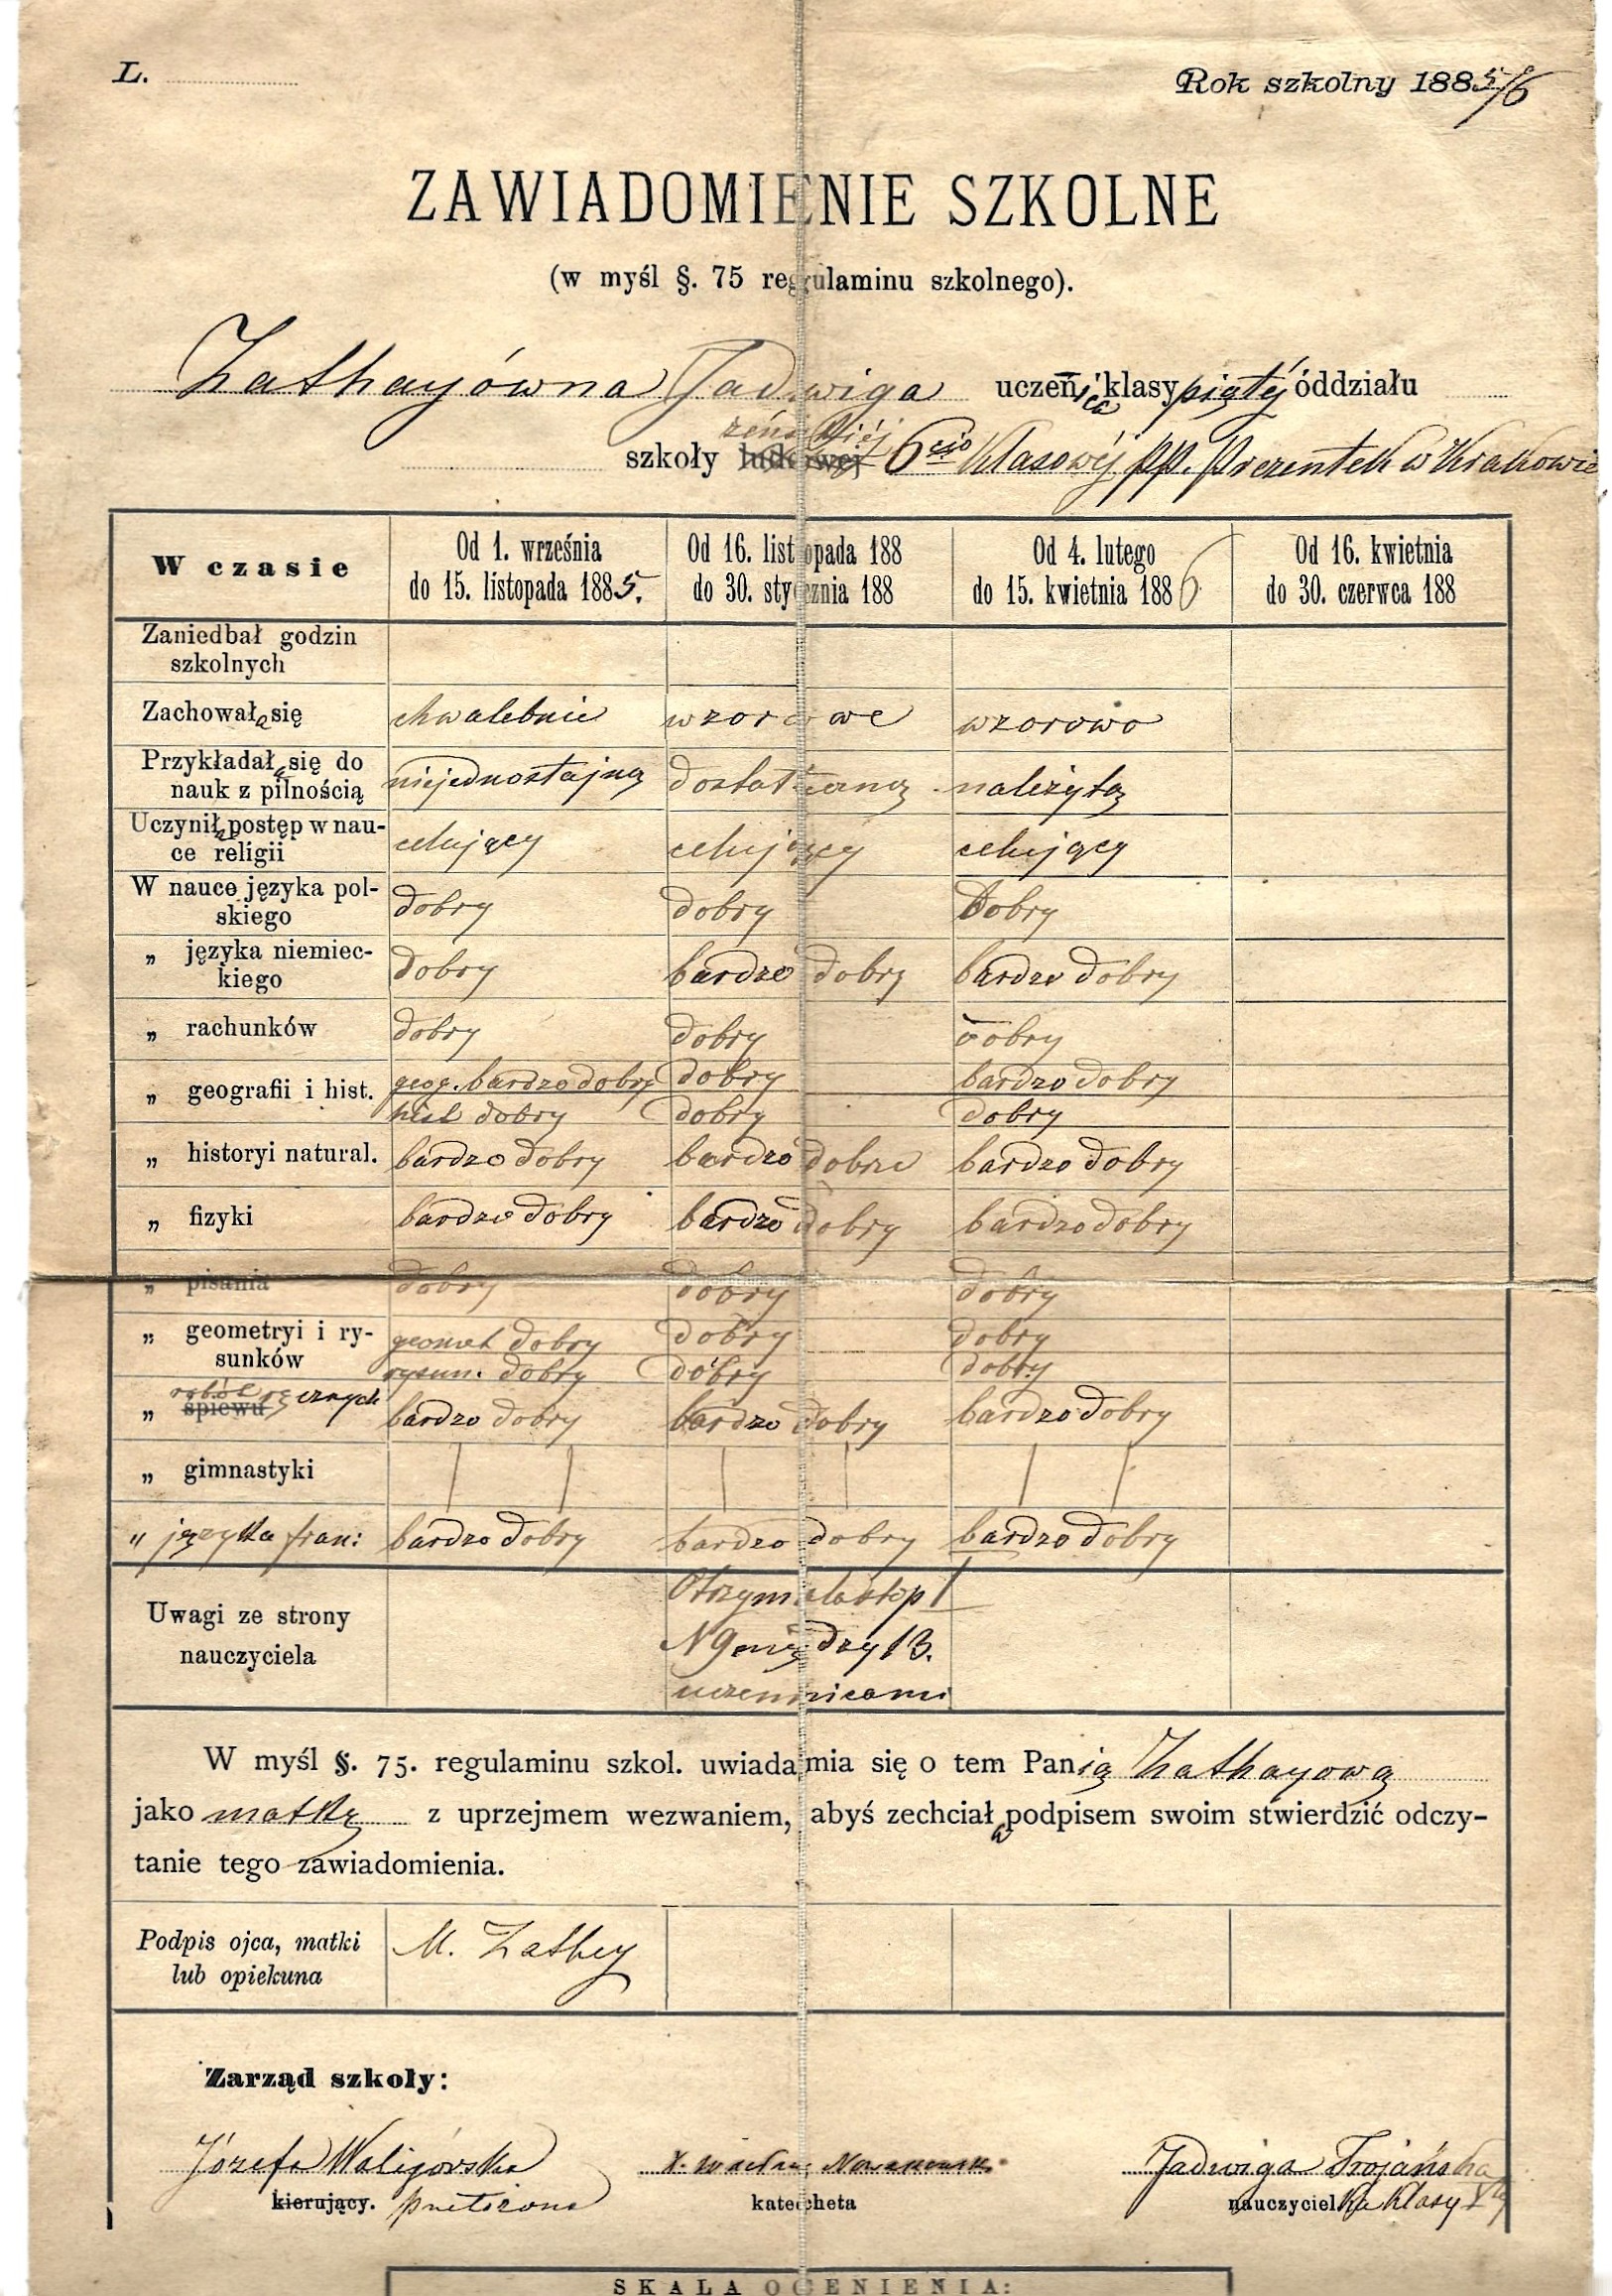 L.
Rok szkolny 1885/6
ZAWIADOMIENIE SZKOLNE
(w myśl §. 75 regulaminu szkolnego).
Zathayówna Jadwiga uczenica klasy piątéj oddziału
szkoły ludowej żeńskiéj 6cio klasowéj pp. Prezentek w Krakowie
W czasie | Od 1. września do 15. listopada 1885. | Od 16. listopada 188 do 30. stycznia 188 | Od 4. lutego do 15. kwietnia 1886 | Od 16. kwietnia do 30. czerwca 188
Zaniedbał godzin szkolnych
Zachowała się | chwalebnie | wzorowe | wzorowo
Przykładała się do nauk z pilnością | niejednostajną | dostateczną | należytą
Uczyniła postęp w nauce religii | celujący | celujący | celujący
W nauce języka polskiego | dobry | dobry | dobry
„ języka niemieckiego | dobry | bardzo dobry | bardzo dobry
„ rachunków | dobry | dobry | dobry
„ geografii i hist. | geog. bardzo dobry | dobry | bardzo dobry
hist dobry | dobry | dobry
„ historyi natural. | bardzo dobry | bardzo dobrze | bardzo dobry
„ fizyki | bardzo dobry | bardzo dobry | bardzo dobry
„ pisania | dobry | dobry | dobry
„ geometryi i rysunków | geomet dobry | dobry | dobry
rysun. dobry | dobry | dobry
„ śpiewu robót ręcznych | bardzo dobry | bardzo dobry | bardzo dobry
„ gimnastyki
„ języka fran: | bardzo dobry | bardzo dobry | bardzo dobry
Uwagi ze strony nauczyciela | Otrzymała stop I
N 9 między 13.
uczennicami
W myśl §. 75. regulaminu szkol. uwiadamia się o tem Panią Zathayową
jako matkę z uprzejmem wezwaniem, abyś zechciała podpisem swoim stwierdzić odczy-
tanie tego zawiadomienia.
Podpis ojca, matki lub opiekuna | M. Zathey
Zarząd szkoły:
Józefa Waligórska | X. Wacław Nowakowski | Jadwiga Trojańska
kierujący. przełożona | katecheta | nauczycielka klasy
SKALA OCENIENIA: